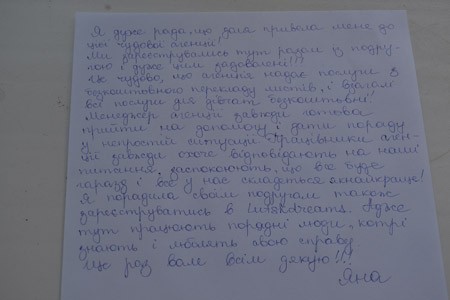 Я дуже рада, що доля привела мене до
цієї чудової агенції!
Ми зареєструвались тут разом із подру-
гою і дуже цим задоволені!!!
Це чудово, що агенція надає послуги з
безкоштовного перекладу листів, і взагалі
всі послуги для дівчат безкоштовні!
Менеджер агенції завжди готова
прийти на допомогу і дати пораду
у непростій ситуації. Працівники аген-
ції завжди охоче відповідають на наші
питання, заспокоюють, що все буде
гаразд і все у нас складеться якнайкраще!
Я порадила своїм подругам також
зареєструватись в Адже
тут працюють порядні люди, котрі
знають і люблять свою справу
Ще раз вам всім дякую!!!
Яна